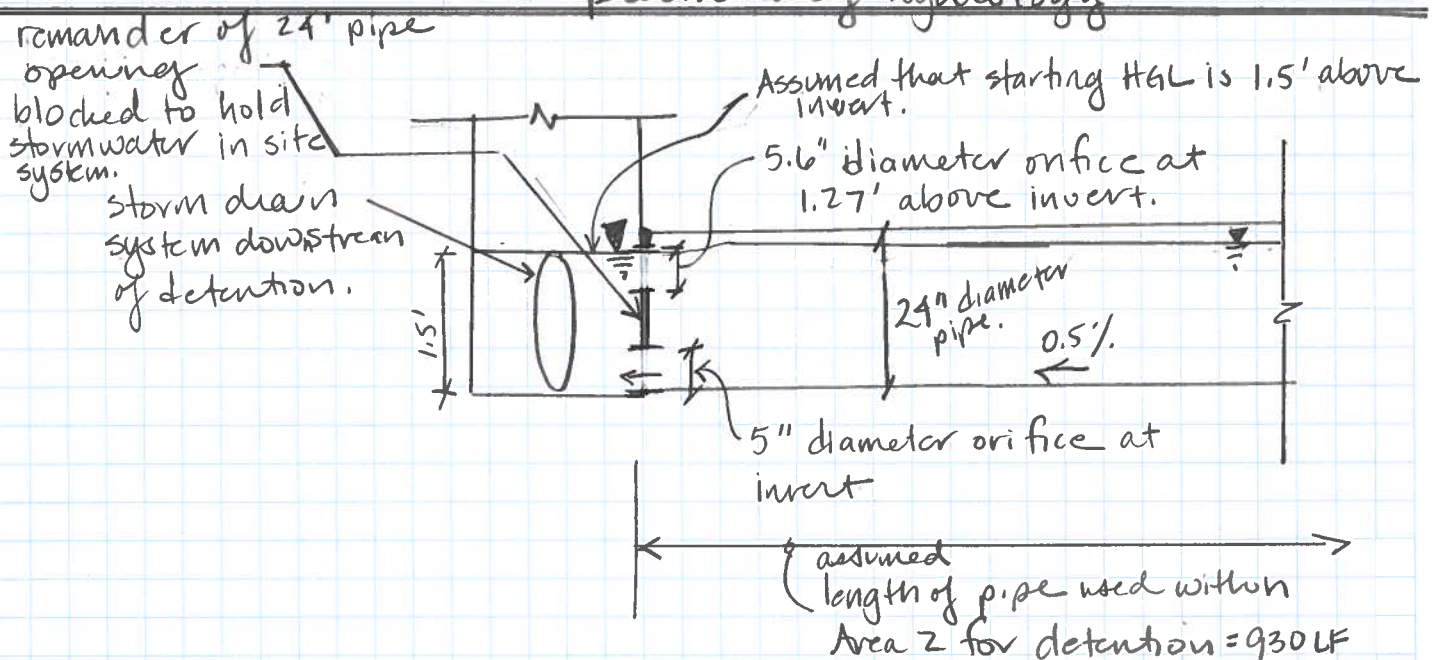 remander of 24' pipe
opening
blocked to hold
stormwater in site
system.
storm drain
system downstream
of detention.
Assumed that starting HGL is 1.5' above
invert.
5.6" diameter orifice at
1.27' above invert.
1.5'
24" diameter
pipe.
0.5%
5" diameter orifice at
invert
assumed
length of pipe used within
Area 2 for detention = 930 LF